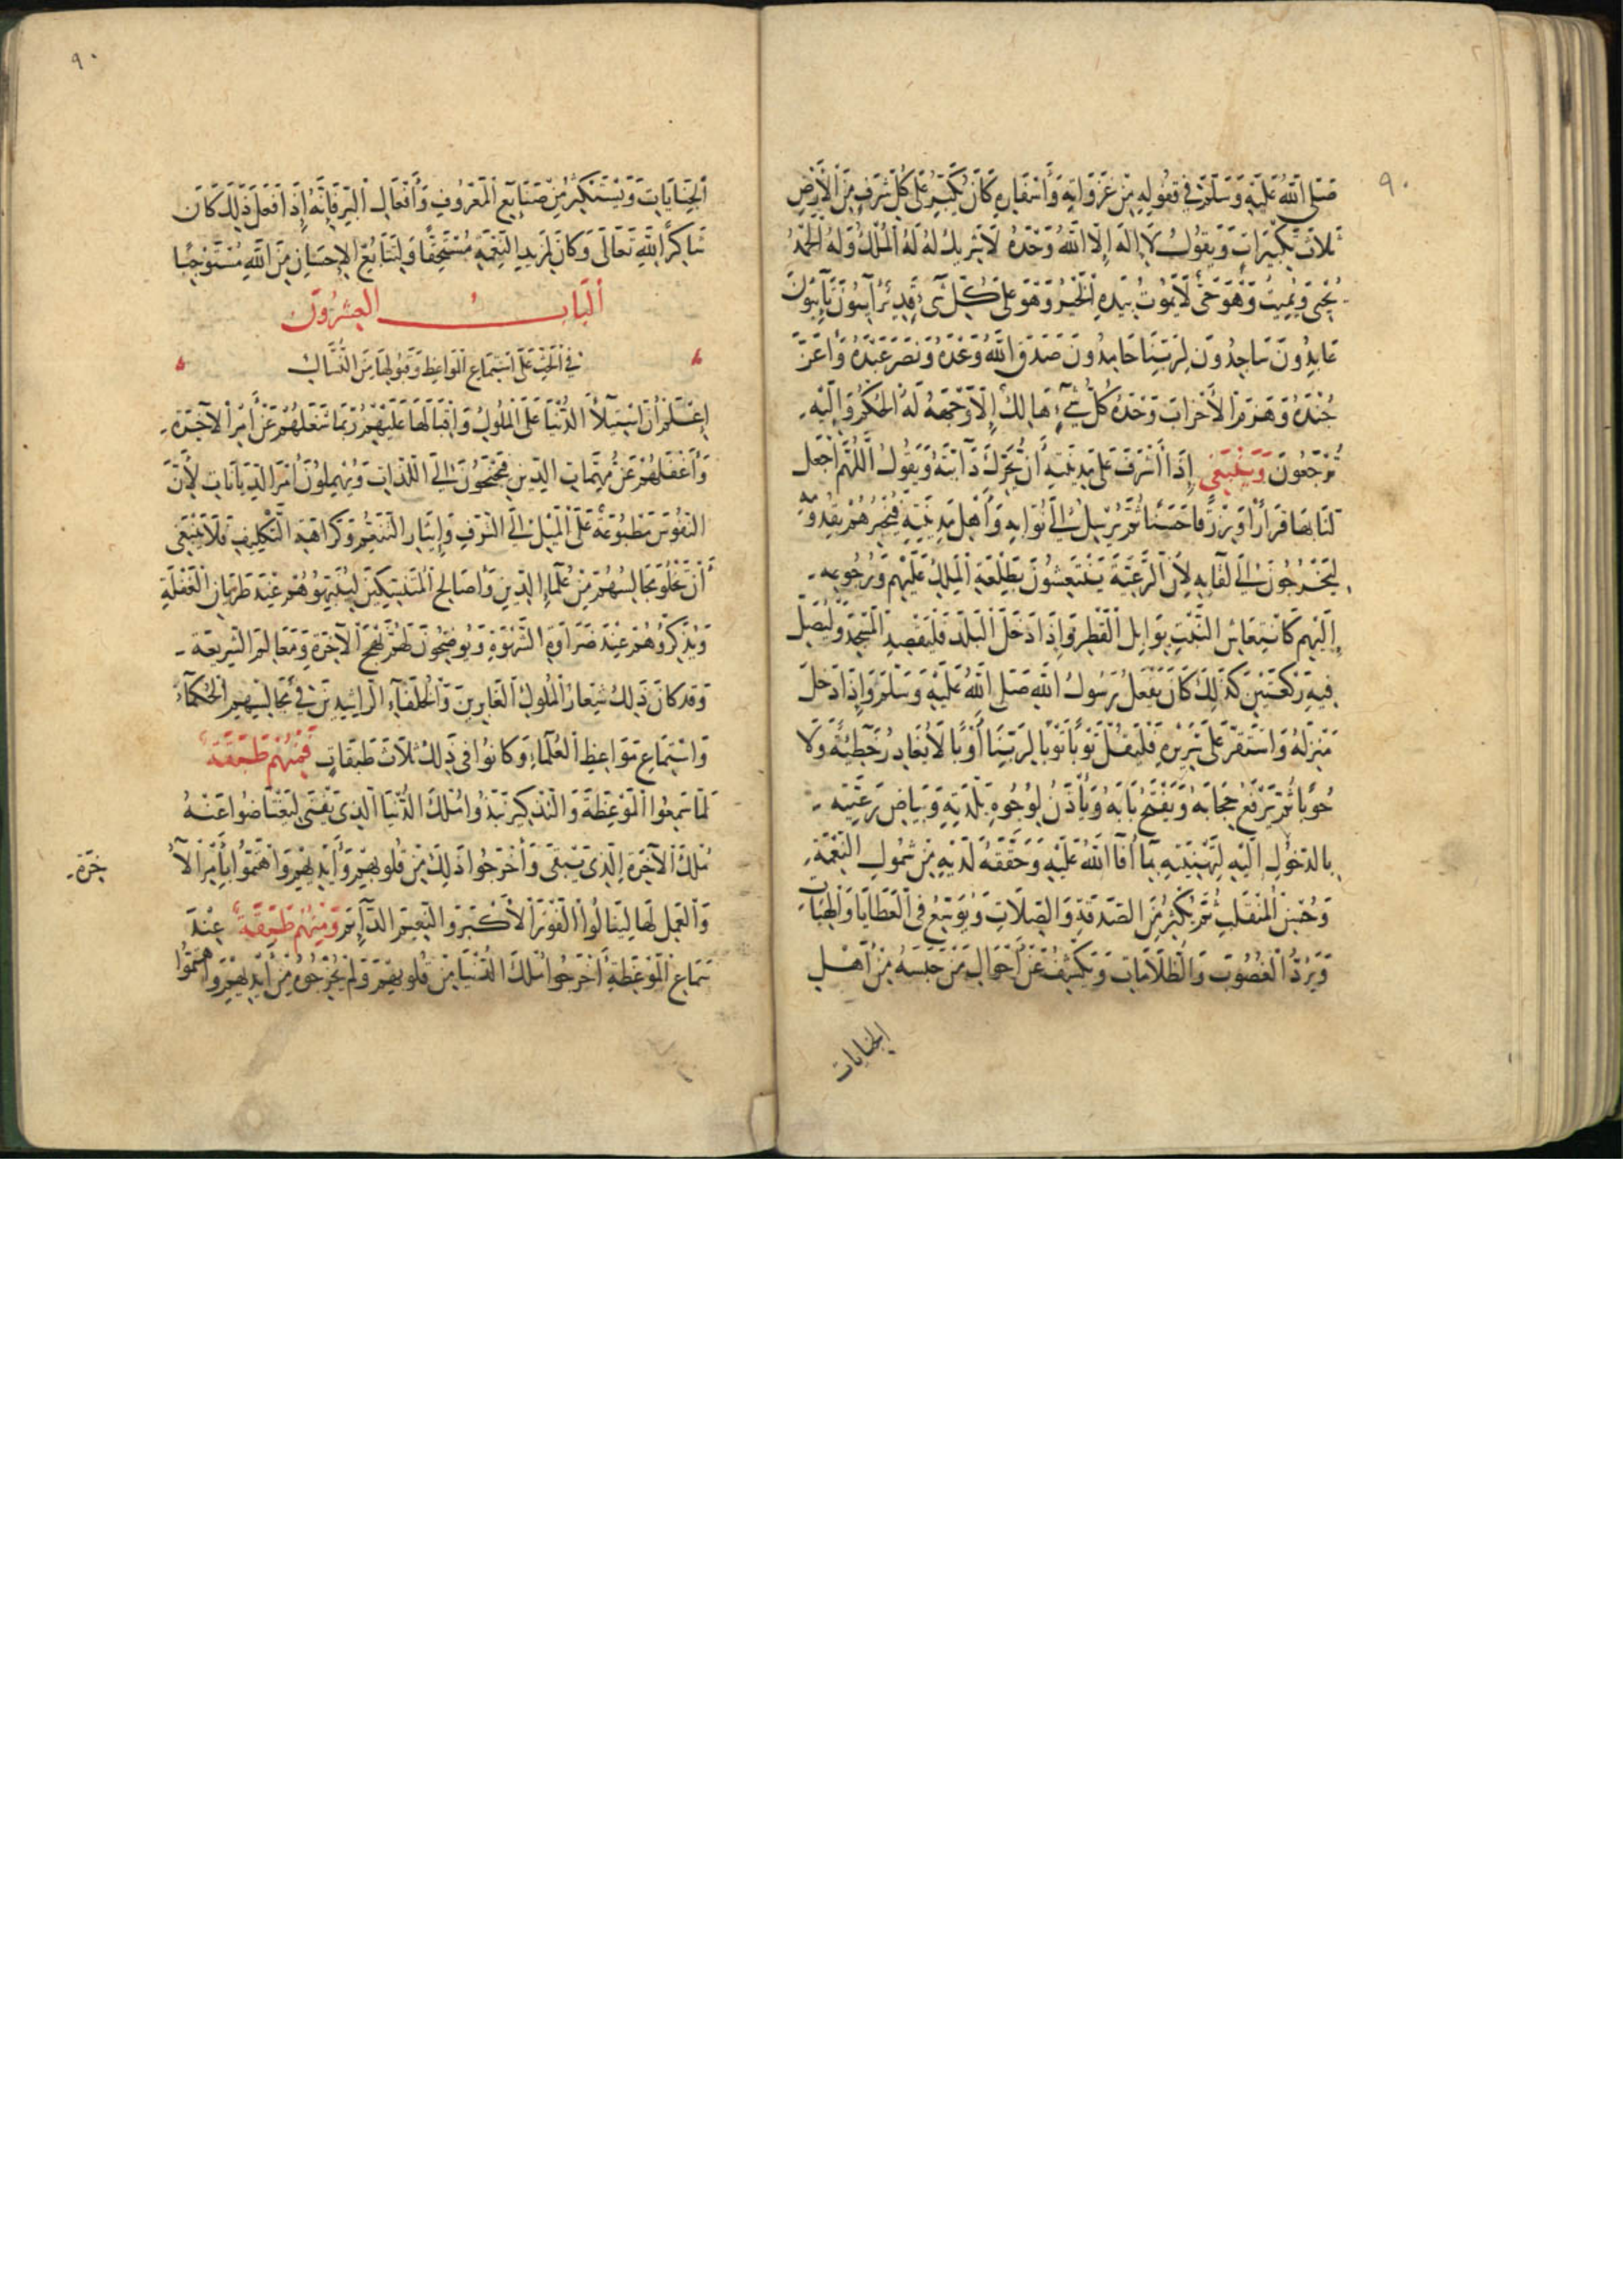 ٩٠
صَلَّى اللَّهُ عَلَيْهِ وَسَلَّمَ فِي قُفُولِهِ مِنْ غَزَوَاتِهِ وَأَسْفَارِهِ كَانَ يُكَبِّرُ عَلَى كُلِّ شَرَفٍ مِنَ الْأَرْضِ
ثَلَاثَ تَكْبِيرَاتٍ وَيَقُولُ لَا إِلَهَ إِلَّا اللَّهُ وَحْدَهُ لَا شَرِيكَ لَهُ لَهُ الْمُلْكُ وَلَهُ الْحَمْدُ
يُحْيِي وَيُمِيتُ وَهُوَ حَيٌّ لَا يَمُوتُ بِيَدِهِ الْخَيْرُ وَهُوَ عَلَى كُلِّ شَيْءٍ قَدِيرٌ آيِبُونَ تَائِبُونَ
عَابِدُونَ سَاجِدُونَ لِرَبِّنَا حَامِدُونَ صَدَقَ اللَّهُ وَعْدَهُ وَنَصَرَ عَبْدَهُ وَأَعَزَّ
جُنْدَهُ وَهَزَمَ الْأَحْزَابَ وَحْدَهُ كُلُّ شَيْءٍ هَالِكٌ إِلَّا وَجْهَهُ لَهُ الْحُكْمُ وَإِلَيْهِ
تُرْجَعُونَ وَيَنْبَغِي إِذَا أَشْرَفَ عَلَى مَدِينَتِهِ أَنْ يُحَرِّكَ دَابَّتَهُ وَيَقُولُ اللَّهُمَّ اجْعَل
لَنَا بِهَا قَرَارًا وَرِزْقًا حَسَنًا ثُمَّ يُرْسِلُ إِلَى نُوَّابِهِ وَأَهْلِ مَدِينَتِهِ فَيُخْبِرُهُمْ بِقُدُومِهِ
لِيَخْرُجُونَ إِلَى لِقَائِهِ لِأَنَّ الرَّعِيَّةَ يَنْتَعِشُونَ بِطَلْعَةِ الْمَلِكِ عَلَيْهِمْ وَرُجُوعِهِ
إِلَيْهِمْ كَانْتِعَاشِ النَّبْتِ بِوَابِلِ الْقَطْرِ وَإِذَا دَخَلَ الْبَلَدَ فَلْيَقْصِدِ الْمَسْجِدَ وَلْيُصَلِّ
فِيهِ رَكْعَتَيْنِ كَذَلِكَ كَانَ يَفْعَلُ رَسُولُ اللَّهِ صَلَّى اللَّهُ عَلَيْهِ وَسَلَّمَ وَإِذَا دَخَلَ
مَنْزِلَهُ وَاسْتَقَرَّ عَلَى سَرِيرِهِ فَلْيَقُلْ تَوْبًا تَوْبًا لِرَبِّنَا أَوْبًا لَا يُغَادِرُ خَطِيئَةً وَلَا
حُوبًا ثُمَّ يَرْفَعُ حِجَابَهُ وَيَفْتَحُ بَابَهُ وَيَأْذَنُ لِوُجُوهِ بَلَدِهِ وَبَيَاضِ رَعِيَّتِهِ
بِالدُّخُولِ إِلَيْهِ لِتَهْنِيَتِهِ بِمَا أَفَا اللَّهُ عَلَيْهِ وَحَقَّقَهُ لَدَيْهِ مِنْ شُمُولِ النِّعْمَةِ
وَحُسْنِ الْمُنْقَلَبِ ثُمَّ يُكْثِرُ مِنَ الصَّدَقَةِ وَالصِّلَاتِ وَيُوَسِّعُ فِي الْعَطَايَا وَالْهِبَاتِ
وَيَرُدُّ الْغُصُوبَ وَالظُّلَامَاتِ وَيَكْشِفُ عَنْ أَحْوَالِ مَنْ حَبَسَهُ مِنْ أَهْلِ
الجنايات
٩٠
الْجِنَايَاتِ وَيَسْتَكْثِرُ مِنْ صَنَايِعِ الْمَعْرُوفِ وَأَفْعَالِ الْبِرِّ فَإِنَّهُ إِذَا فَعَلَ ذَلِكَ كَانَ
شَاكِرًا لِلَّهِ تَعَالَى وَكَانَ لِمَزِيدِ النِّعْمَةِ مُسْتَحِقًّا وَلِتَتَابُعِ الْإِحْسَانِ مِنَ اللَّهِ مُسْتَوْجِبًا
الْبَابُ الْعِشْرُونَ
فِي الْحَثِّ عَلَى اسْتِمَاعِ الْمَوَاعِظِ وَقَبُولِهَا مِنَ النُّسَّاكِ
إِعْلَمْ أَنَّ اسْتِيلَاءَ الدُّنْيَا عَلَى الْمُلُوكِ وَإِقْبَالَهَا عَلَيْهِمْ رُبَّمَا شَغَلَهُمْ عَنْ أَمْرِ الْآخِرَةِ
وَأَغْفَلَهُمْ عَنْ مُهِمَّاتِ الدِّينِ فَيَجْنَحُونَ إِلَى اللَّذَّاتِ وَيُهْمِلُونَ أَمْرَ الدِّيَانَاتِ لِأَنَّ
النُّفُوسَ مَطْبُوعَةٌ عَلَى الْمَيْلِ إِلَى التَّرَفِ وَإِيثَارِ التَّنَعُّمِ وَكَرَاهَةِ التَّكْلِيفِ فَلَا يَنْبَغِي
أَنْ تَخْلُوَ مَجَالِسُهُمْ مِنْ عُلَمَاءِ الدِّينِ وَأَصَالِحِ الْمُتَنَسِّكِينَ لِيُنَبِّهُوهُمْ عِنْدَ طَرَيَانِ الْغَفْلَةِ
وَيُذَكِّرُوهُمْ عِنْدَ ضَرَاوَةِ الشَّهْوَةِ وَيُوضِحُونَ لَهُمْ نَهْجَ الْآخِرَةِ وَمَعَالِمَ الشَّرِيعَةِ
وَقَدْ كَانَ ذَلِكَ شِعَارُ الْمُلُوكِ الْغَابِرِينَ وَالْخُلَفَاءِ الرَّاشِدِينَ فِي مَجَالِسِهِمُ الْحُكَمَاءَ
وَاسْتِمَاعِ مَوَاعِظِ الْعُلَمَاءِ وَكَانُوا فِي ذَلِكَ ثَلَاثَ طَبَقَاتٍ فَمِنْهُمْ طَبَقَةٌ
لَمَّا سَمِعُوا الْمَوْعِظَةَ وَالتَّذْكِيرَ نَبَذُوا مُلْكَ الدُّنْيَا الَّذِي يَفْنَى لِيَعْتَاضُوا عَنْهُ
مُلْكَ الْآخِرَةِ الَّذِي يَبْقَى وَأَخْرَجُوا ذَلِكَ مِنْ قُلُوبِهِمْ وَأَيْدِيهِمْ وَاهْتَمُّوا بِأَمْرِ الْآ
خِرَةِ
وَالْعَمَلِ لَهَا لِيَنَالُوا الْفَوْزَ الْأَكْبَرَ وَالنَّعِيمَ الدَّائِمَ وَمِنْهُمْ طَبَقَةٌ عِنْدَ
سَمَاعِ الْمَوْعِظَةِ أَخْرَجُوا مُلْكَ الدُّنْيَا مِنْ قُلُوبِهِمْ وَلَمْ يُخْرِجُوهُ مِنْ أَيْدِيهِمْ وَاهْتَمُّوا